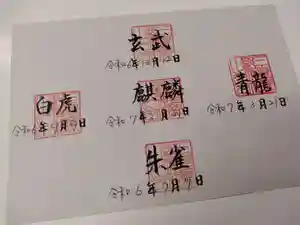 玄武
令和6年12月12日
白虎
令和6年9月9日
麒麟
令和7年
青龍
令和7年3月21日
朱雀
令和6年7月7日